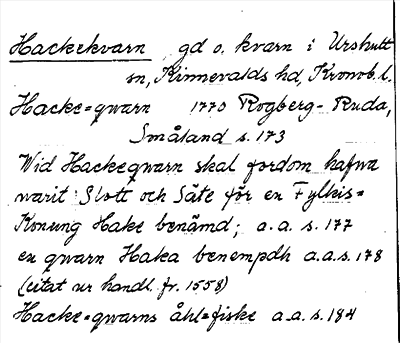 Hackekvarn, gd o. kvarn i Urshult
sn, Kinnevalds hd, Kronob. l.
Hacke=qwarn 1770 Rogberg-Ruda,
Småland s. 173
Wid Hackeqwarn skal fordom hafwa
warit Slott och Säte för en Fylkis=
Konung Hake benämd; a.a. s. 177
en qwarn Haka benempdh a.a. s. 178
(citat ur handl. fr. 1558)
Hacke=qwarns åhl=fiske a.a. s. 184